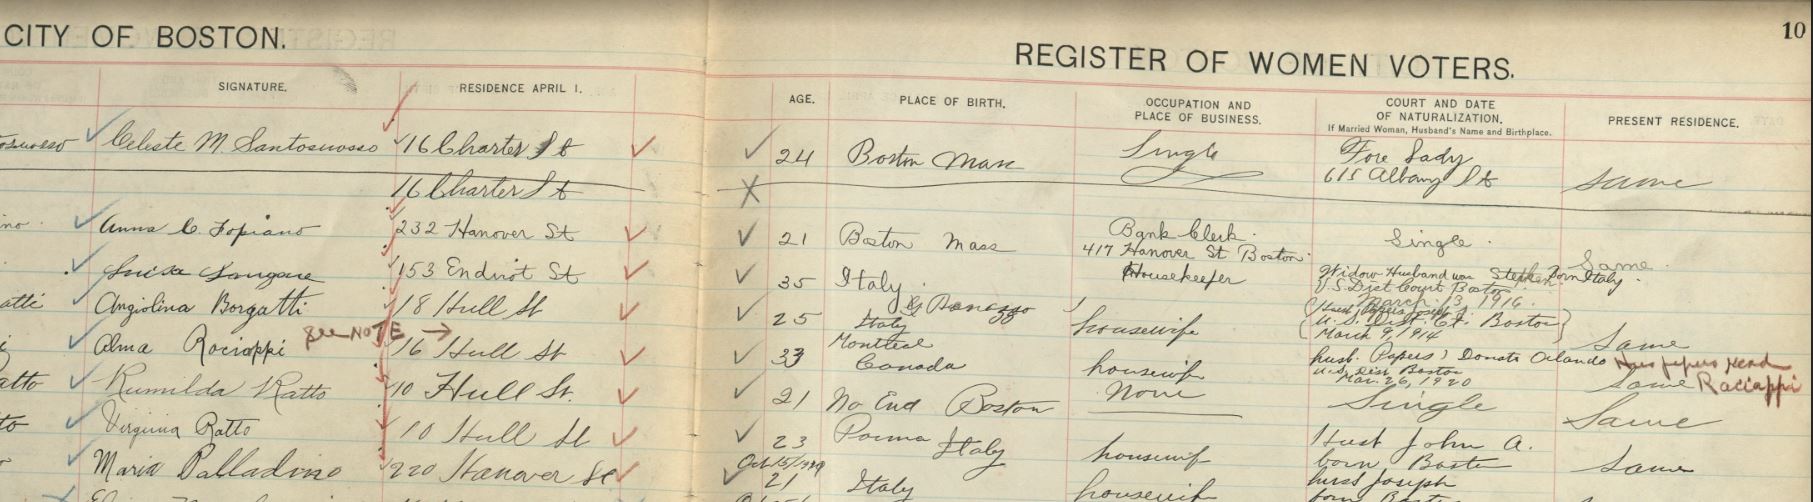 CITY OF BOSTON.
REGISTER OF WOMEN VOTERS.
10
SIGNATURE.
RESIDENCE APRIL 1.
AGE.
PLACE OF BIRTH.
OCCUPATION AND
PLACE OF BUSINESS.
COURT AND DATE
OF NATURALIZATION.
If Married Woman, Husband's Name and Birthplace.
PRESENT RESIDENCE.
Celeste M. Santosuosso 16 Charter St 24 Boston Mass Single Fore Lady
615 Albany St same
16 Charter St
Anna C. Fopiano 232 Hanover St 21 Boston Mass Bank Clerk. Single.
417 Hanover St Boston. Same.
153 Endicot St 35 Italy Housekeeper Widow Husband was Stephen Born Italy.
U.S. Dist Court Boston
March 13, 1916.
Angiolina Borgatti 18 Hull St 25 Italy housewife
U.S. Dist Ct. Boston
March 9, 1914 Same
See NOTE →
Alma Raciappi 16 Hull St 33 Montreal
Canada housewife husb. Papers Donato Orlando
U.S. Dist Boston
Mar. 26, 1920 Same Raciappi
Rumilda Ratto 10 Hull St. 21 No End Boston None Single Same
Virginia Ratto 10 Hull St 23 Parma Italy housewife Husb John A.
born Boston Same
Maria Palladino 220 Hanover St Oct 15/1920
21 Italy housewife husb Joseph
born Boston